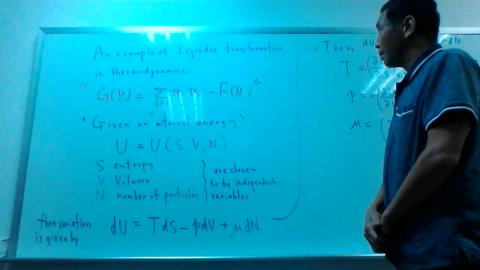 An example of Legendre transformation
in thermodynamics.
" G(u) = Σ u v - F(u) "
" Given an "internal energy"
U = U(S, V, N)
S entropy
V Volume
N number of particles
are chosen
to be independent
variables
then variation
is given by
dU = TdS - pdV + μdN
Then dU
dN
T = (
p = -(
μ = (